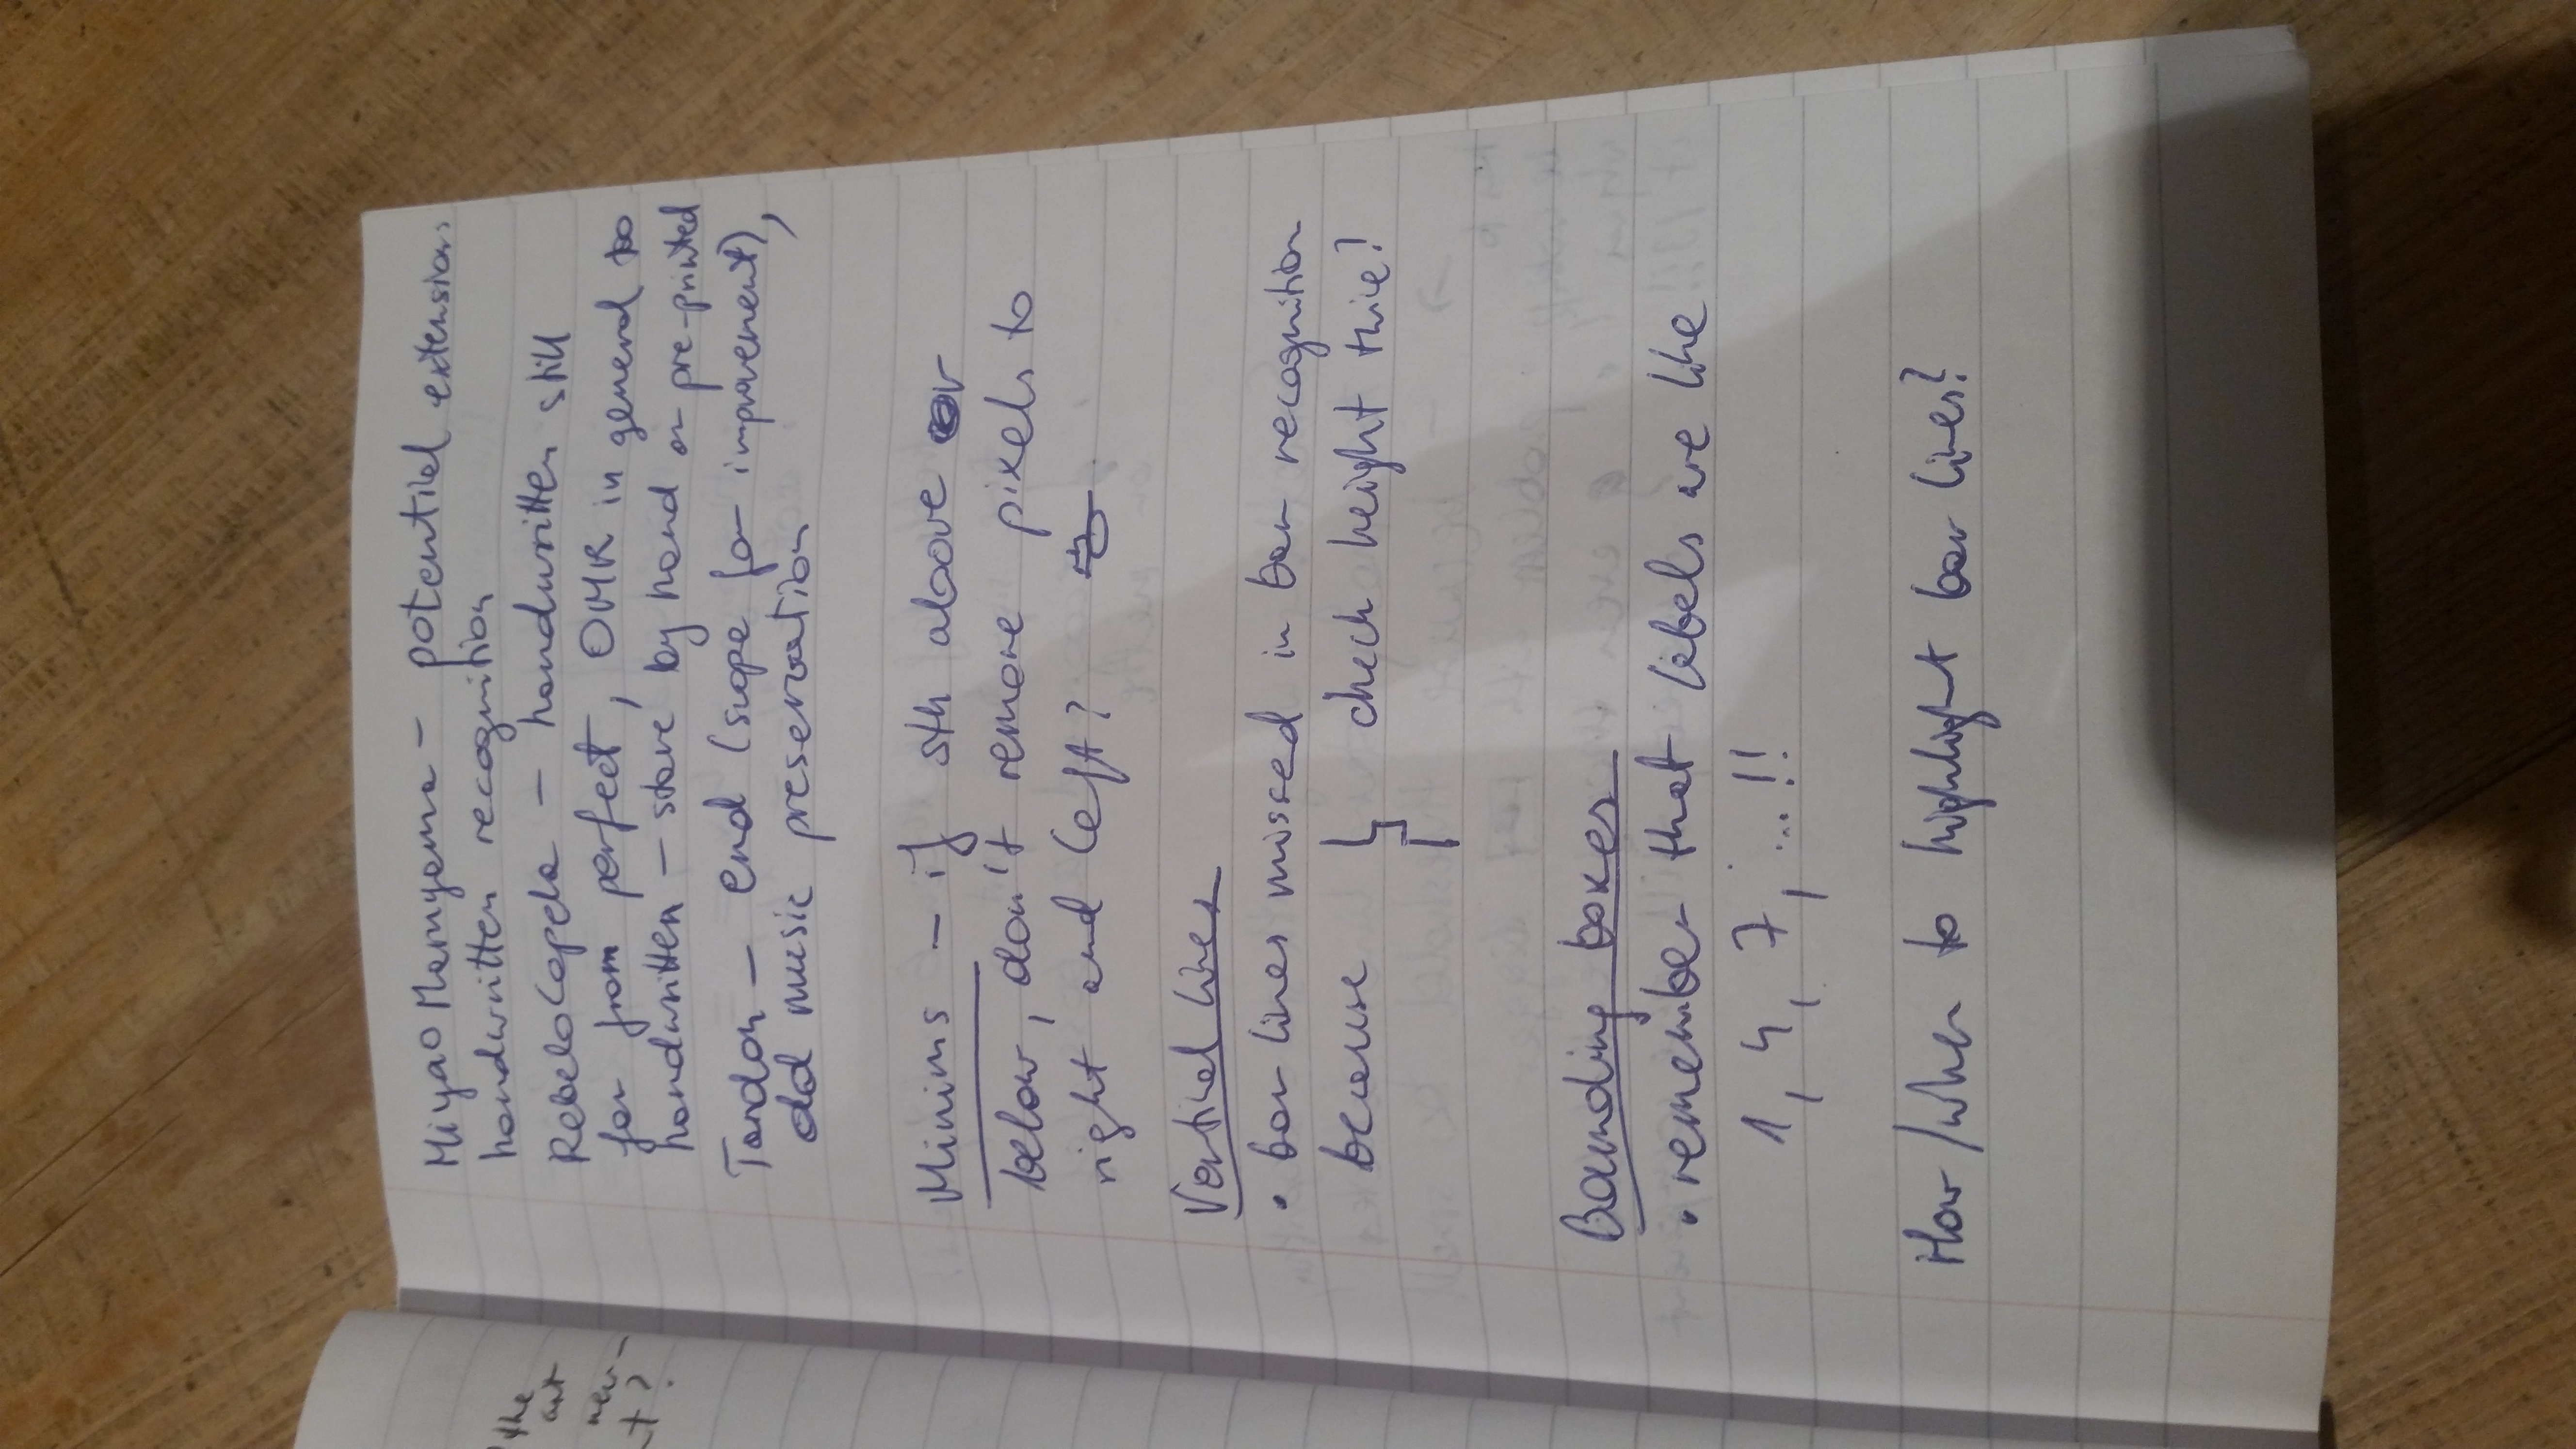 the
art
new-
t?
Miyao Maruyama – potential extension:
handwritten recognition
RebeloCapela – handwritten still
far from perfect, OMR in general too
handwritten – stave by hand or pre-printed
Tandon – end (scope for improvement),
old music preservation
Minims – if sth above or
below, don't remove pixels to
right and left?
Vertical lines
• bar lines missed in bar recognition
because check height twice?
Bounding boxes
• remember that labels are like
1, 4, 7, ...!!
How/when to highlight bar lines?